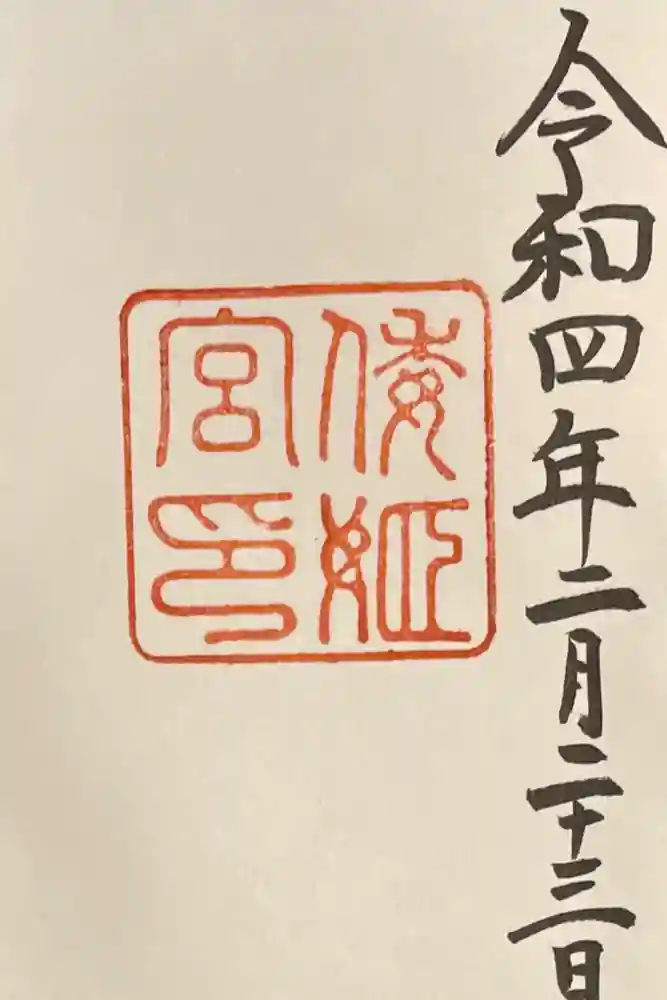 令和四年二月二十三日
倭姫
宮印